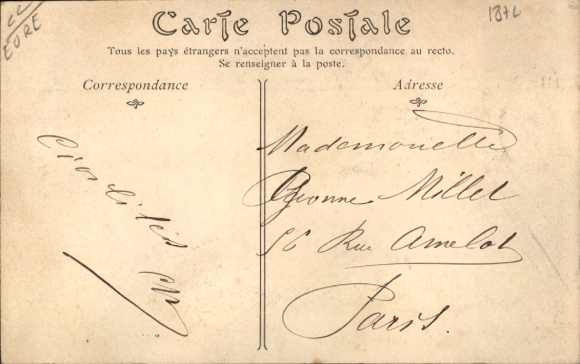 EURE
1872
Carte Postale
Tous les pays étrangers n'acceptent pas la correspondance au recto.
Se renseigner à la poste.
Correspondance
Adresse
Civilités
Mademoiselle
Yvonne Millet
56 Rue Amelot
Paris.